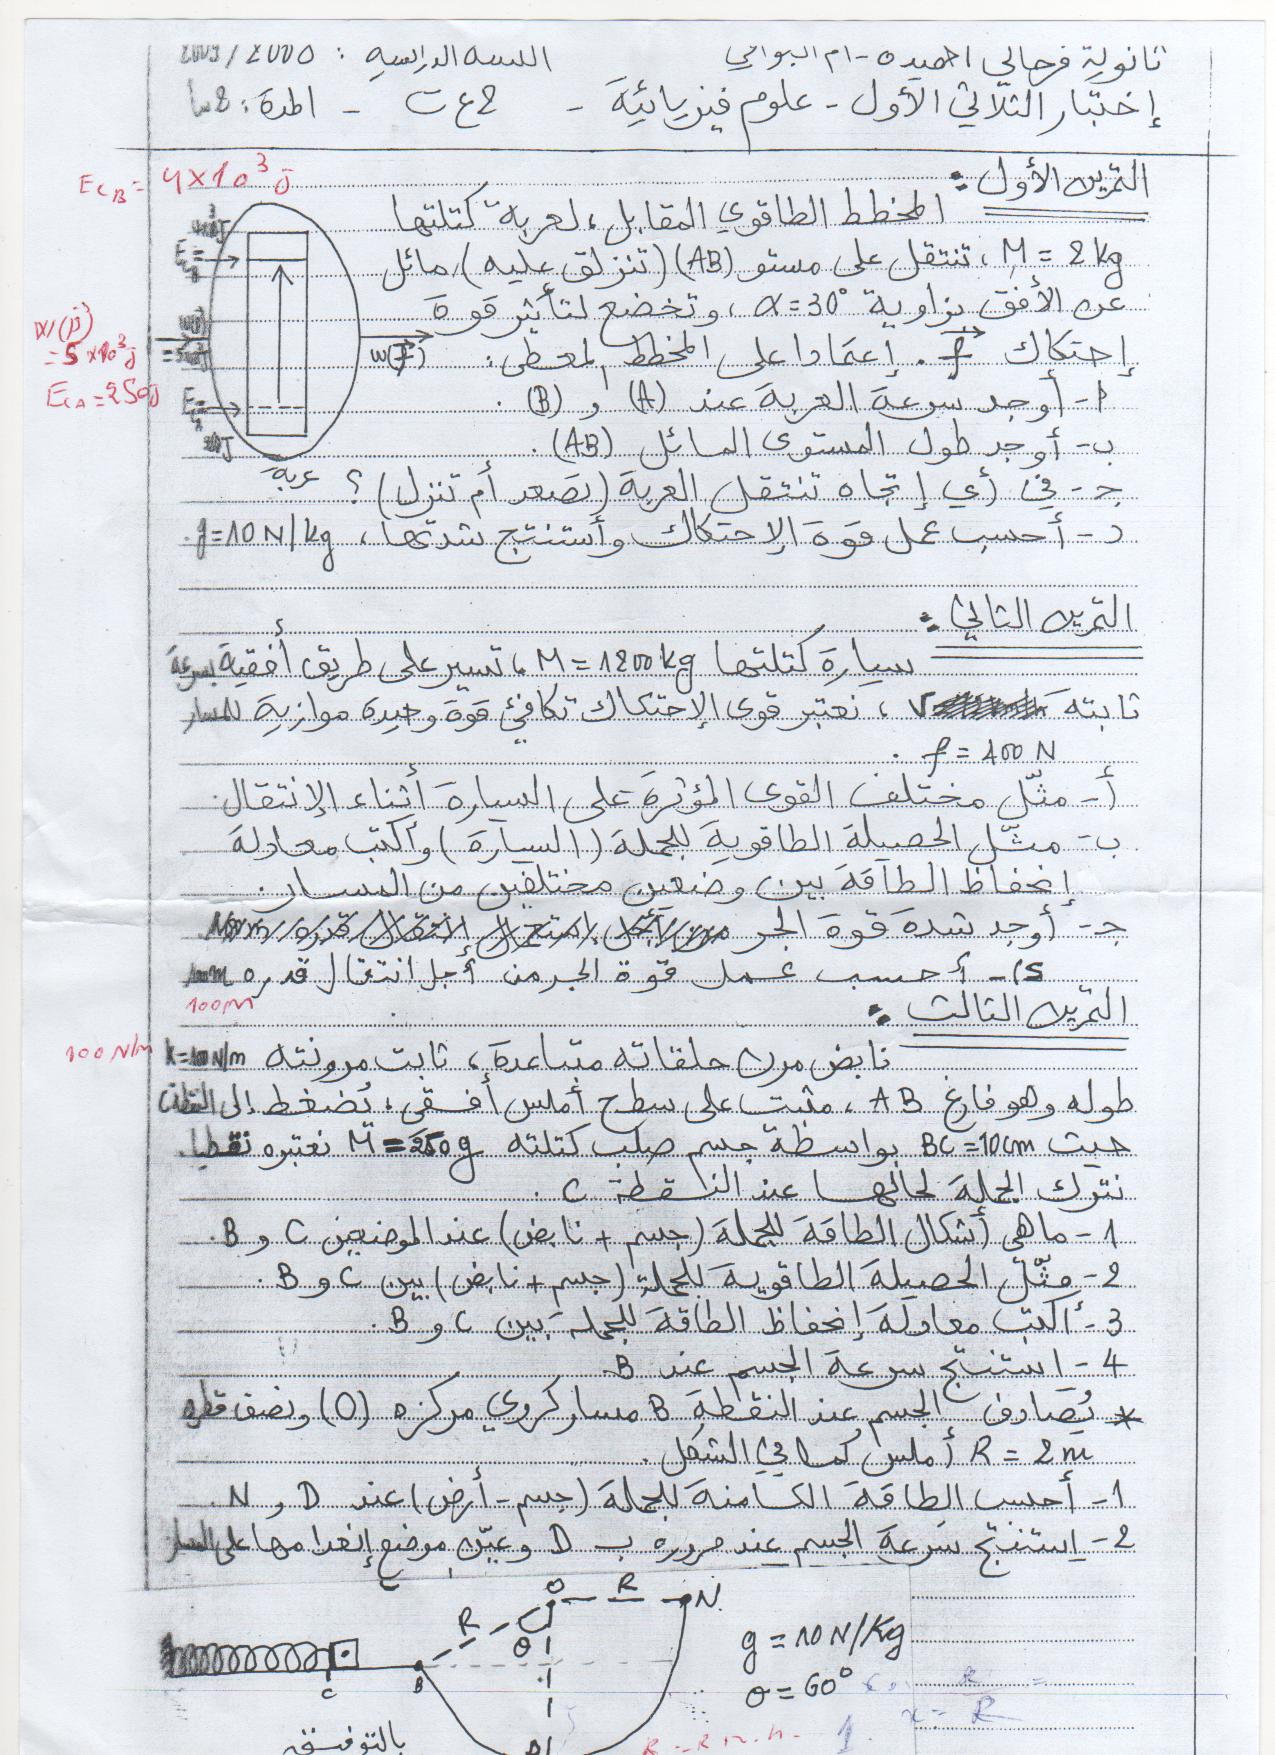 ثانوية فرحاتي احميدة - ام البواقي السنة الدراسية : 2000/2009
إختبار الثلاثي الأول - علوم فيزيائية - 2ع ت - المدة : 2 سا
التمرين الأول :
EcB = 4×10³ J
المخطط الطاقوي المقابل، لعربة كتلتها
M = 2 kg ، تنتقل على مستو (AB) (تنزلق عليه) مائل
عن الأفق بزاوية α = 30° ، وتخضع لتأثير قوة
إحتكاك f . إعتمادا على المخطط المعطى :
W(p) = 5×10³ J
EcA = 250 J
W(f)
عربة
أ - أوجد سرعة العربة عند (A) و (B) .
ب - أوجد طول المستوى المائل (AB) .
جـ - في أي إتجاه تنتقل العربة (تصعد أم تنزل) ؟
د - أحسب عمل قوة الإحتكاك وأستنتج شدتها ، g = 10 N/kg .
التمرين الثاني :
سيارة كتلتها M = 1200 kg ، تسير على طريق أفقية بسرعة
ثابتة V ، نعتبر قوى الإحتكاك تكافئ قوة وحيدة موازية للمسار
f = 400 N .
أ - مثّل مختلف القوى المؤثرة على السيارة أثناء الإنتقال .
ب - مثّل الحصيلة الطاقوية للجملة (السيارة) وأكتب معادلة
إنحفاظ الطاقة بين وضعين مختلفين من المسار .
جـ - أوجد شدة قوة الجر
د - أحسب عمل قوة الجر من أجل انتقال قدره 100 m
100 m
التمرين الثالث :
نابض مرن حلقاته متباعدة ، ثابت مرونته K = 100 N/m
100 N/m
طوله وهو فارغ AB ، مثبت على سطح أملس أفقي ، نضغط إلى النقطة
حيث BC = 10 cm بواسطة جسم صلب كتلته M = 250 g نعتبره نقطيا .
نترك الجملة لحالها عند النقطة C .
1 - ما هي أشكال الطاقة للجملة (جسم + نابض) عند الموضعين C و B .
2 - مثّل الحصيلة الطاقوية للجملة (جسم + نابض) بين C و B .
3 - أكتب معادلة إنحفاظ الطاقة للجملة بين C و B .
4 - استنتج سرعة الجسم عند B
* يُصادف الجسم عند النقطة B مسار كروي مركزه (O) ونصف قطره
R = 2 m أملس كما في الشكل .
1 - أحسب الطاقة الكامنة للجملة (جسم - أرض) عند D و N .
2 - إستنتج سرعة الجسم عند مروره بـ D وعيّن موضع إنعدامها على المسار
O R N
R θ
C B D
g = 10 N/Kg
θ = 60°
بالتوفيق